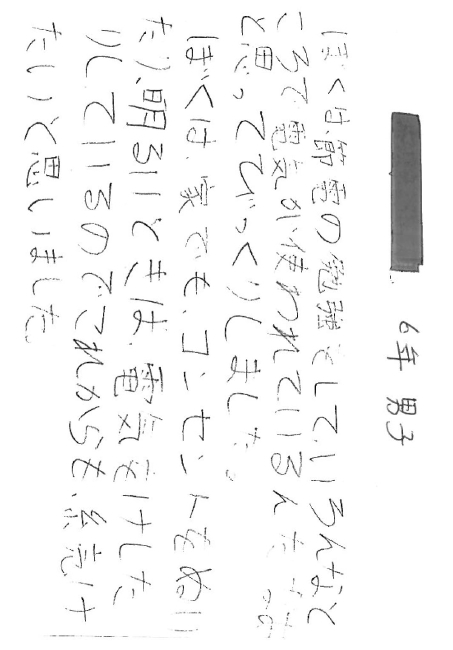 6年 男子
ぼくは、節電の勉強をして、いろんなと
ころで電気が使われているんだな
と思ってびっくりしました。
ぼくは、家でも、コンセントをぬい
たり、明るいときは、電気をけした
りしているのでこれからも、続け
たいと思いました。